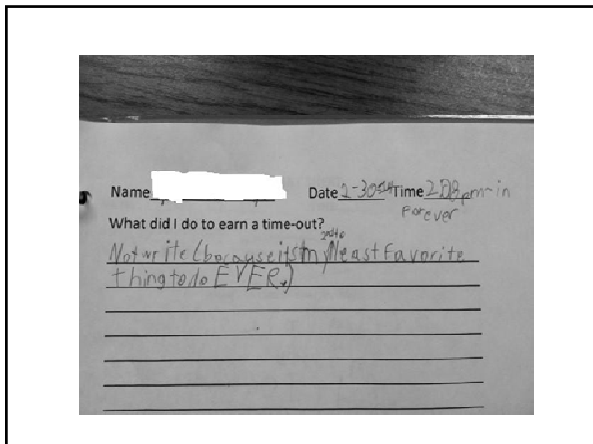 Name Date 1-30 Time 2:08 pm-in
Forever
What did I do to earn a time-out?
Not write (because its my least favorite
thing to do EVER.)